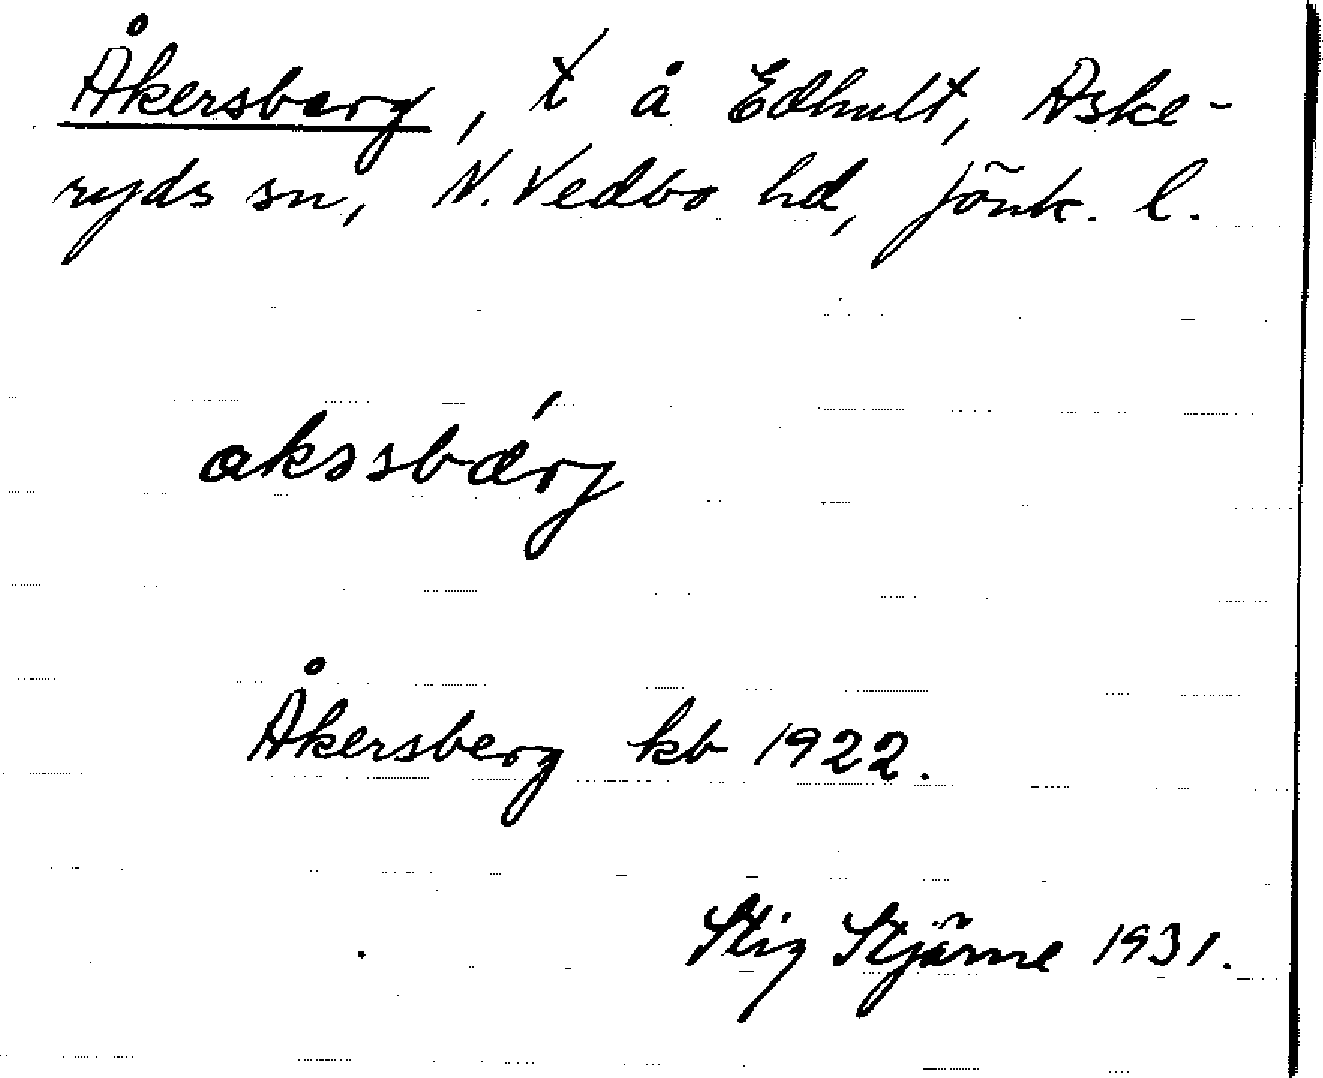 Åkersberg, t å Edhult, Aske-
ryds sn, N. Vedbo hd, Jönk. l.
akssbærj
Åkersberg kb 1922.
Stig Stjärne 1931.